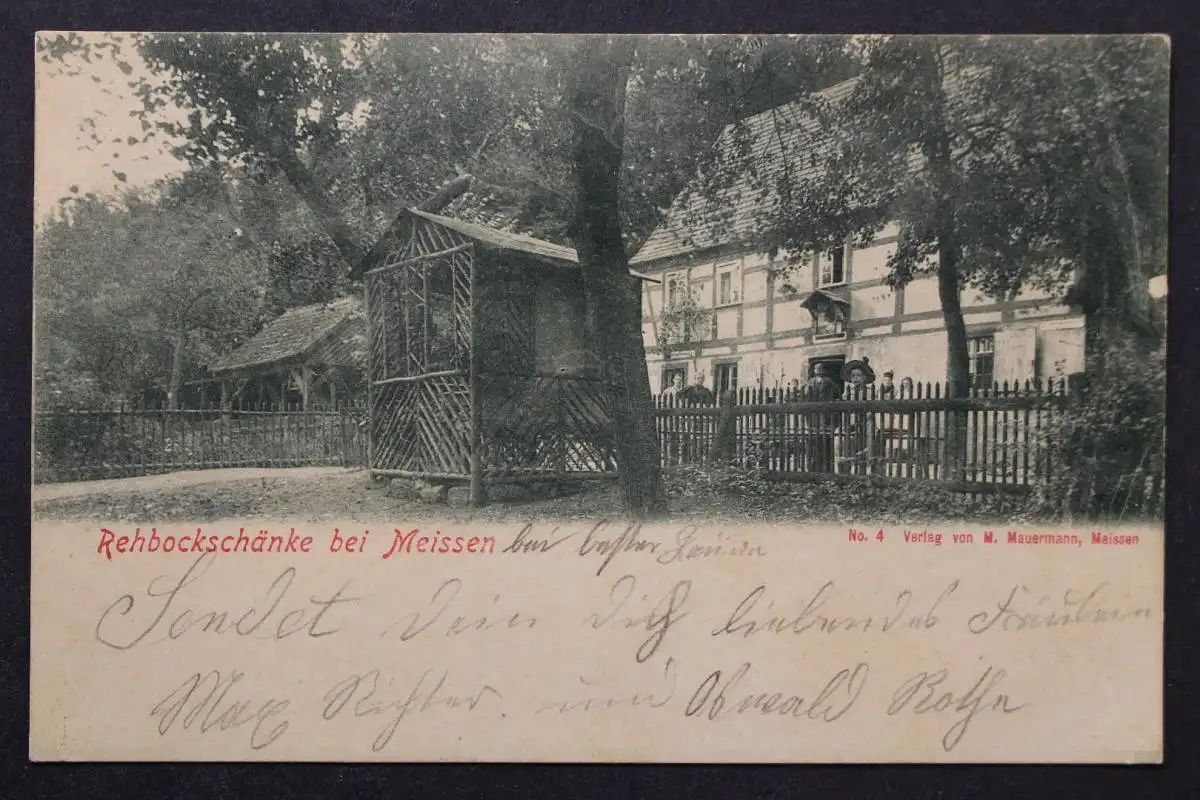 Rehbockschänke bei Meissen bei bester Laune
No. 4 Verlag von M. Mauermann, Meissen
Sendet Dein Dich liebendes
Max Richter. und Oswald Rothe